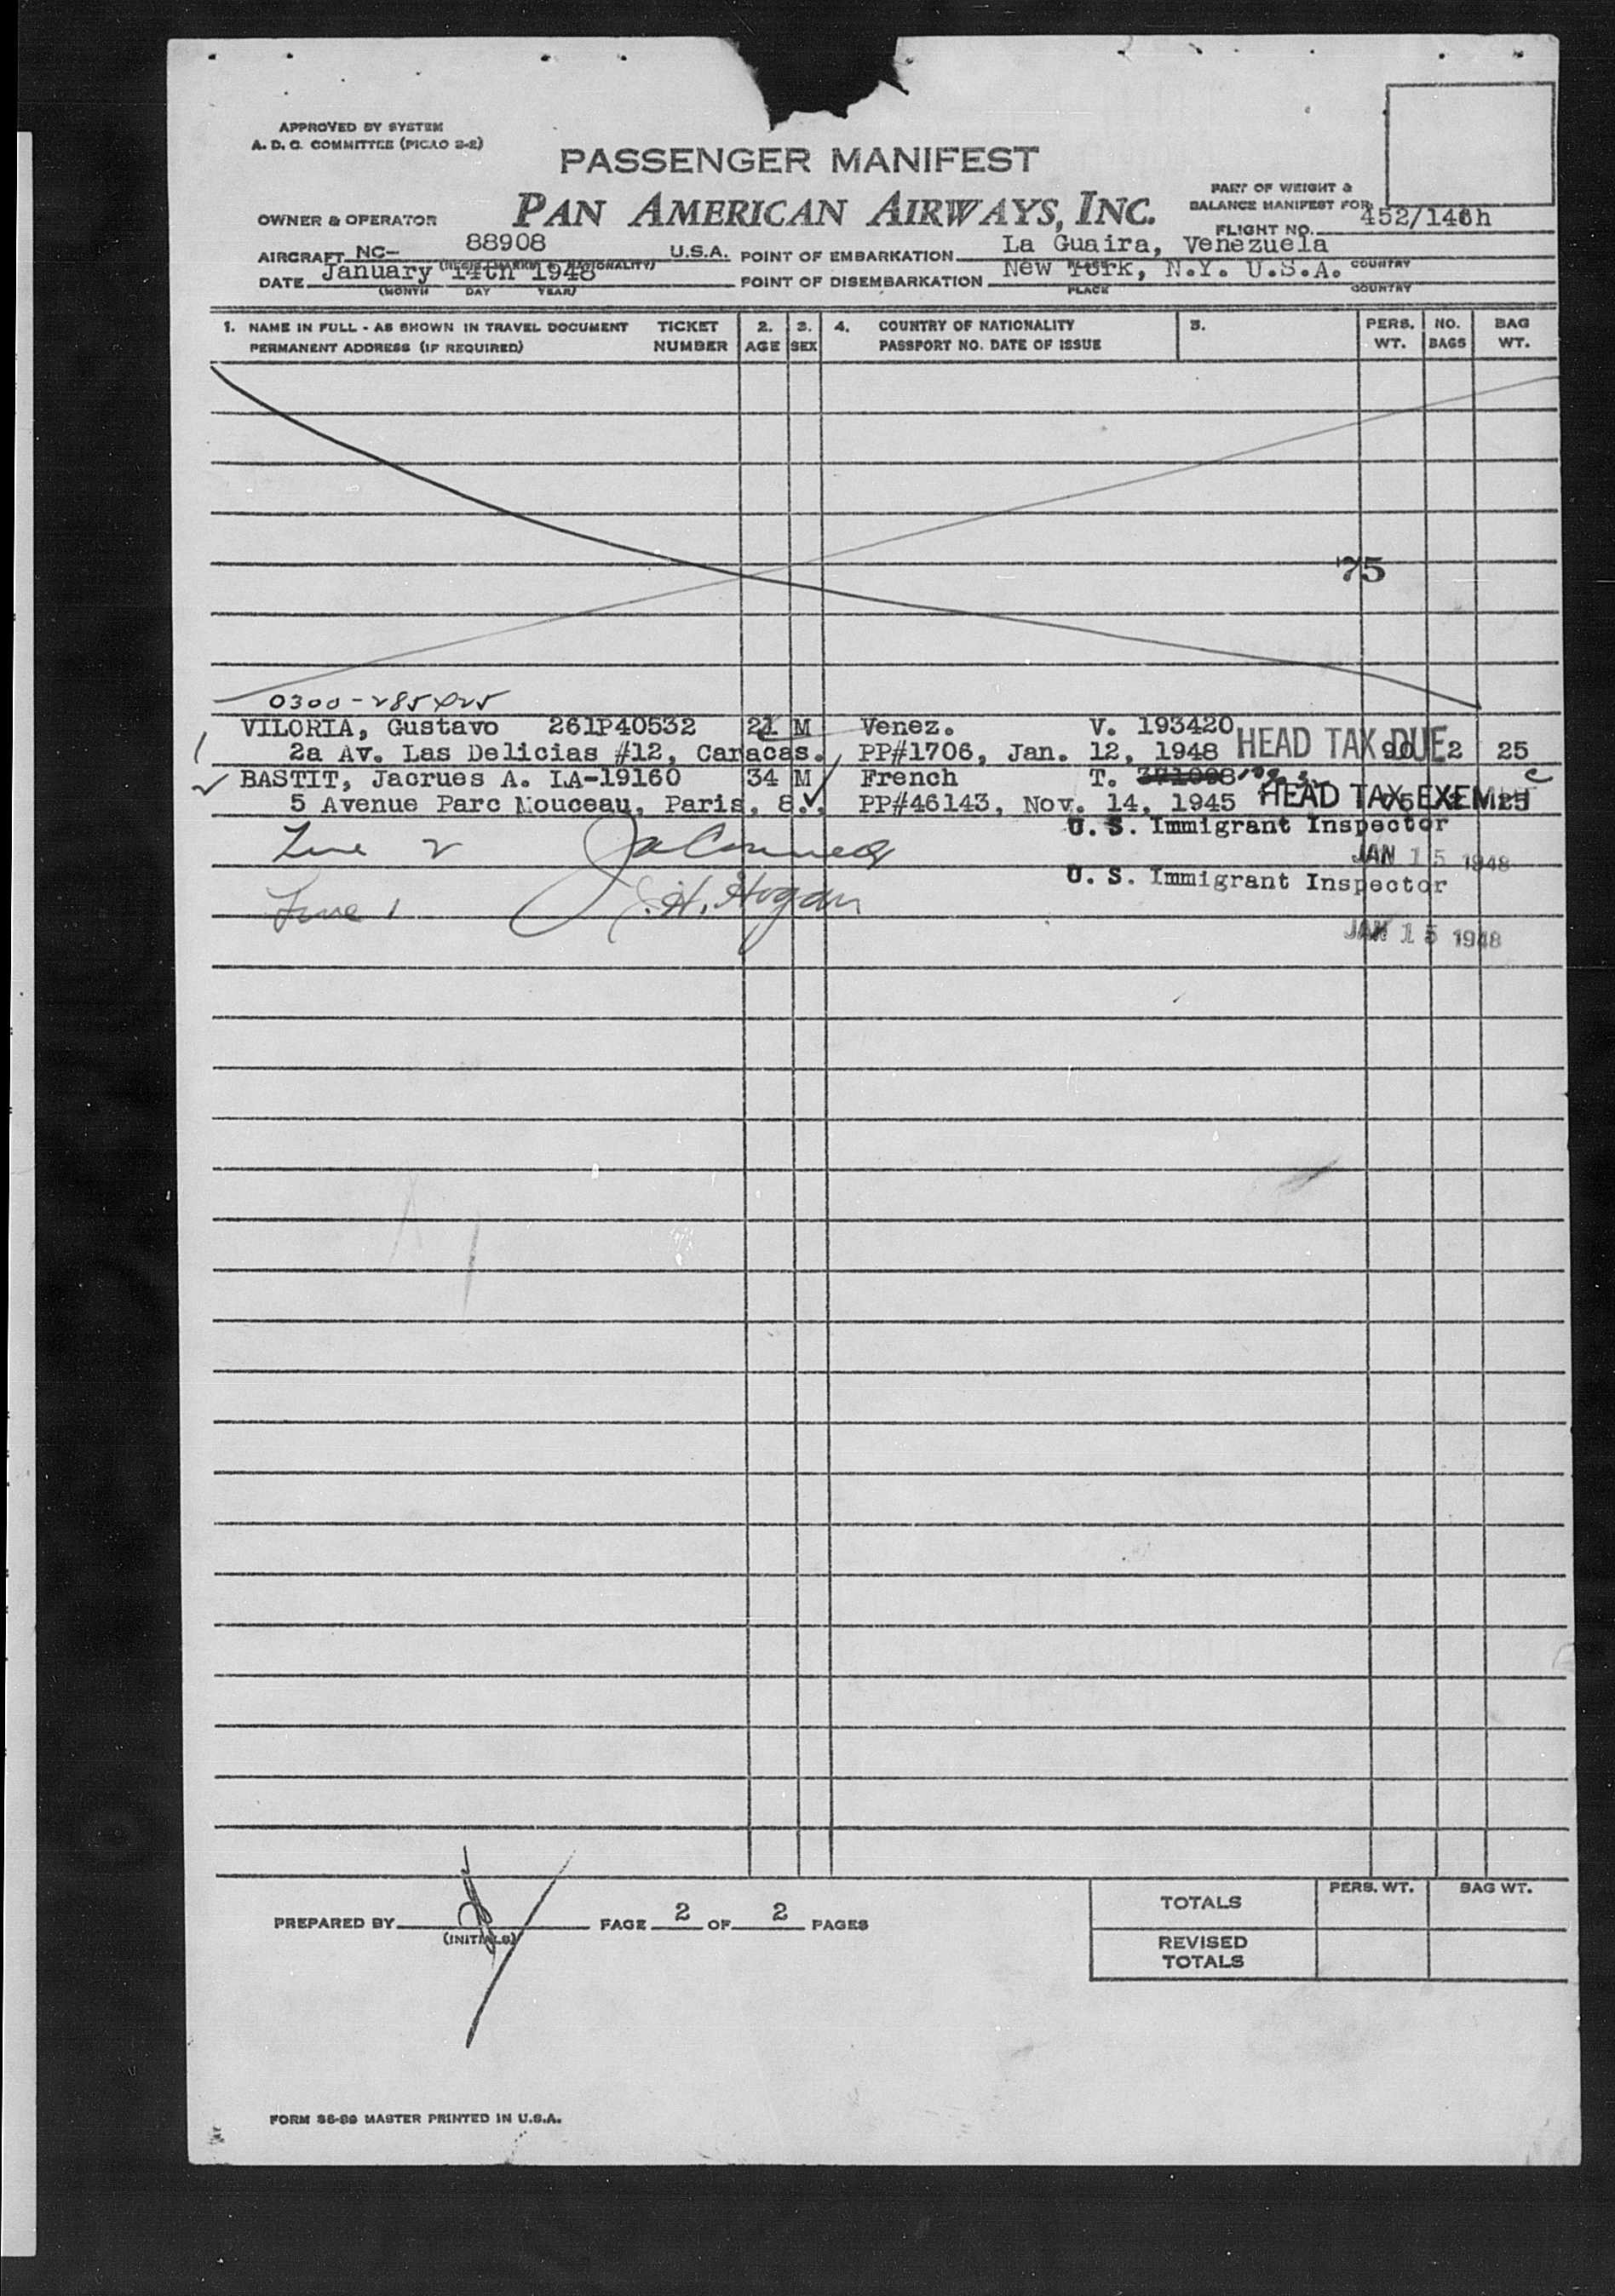 APPROVED BY SYSTEM
A. D. C. COMMITTEE (PICAO 2-2)
PASSENGER MANIFEST
PAN AMERICAN AIRWAYS, INC.
PART OF WEIGHT &
BALANCE MANIFEST FOR
FLIGHT NO. 452/146h
OWNER & OPERATOR
AIRCRAFT NC- 88908 U.S.A. POINT OF EMBARKATION La Guaira, Venezuela
DATE January 14th 1948 POINT OF DISEMBARKATION New York, N.Y. U.S.A. COUNTRY
(MONTH DAY YEAR) PLACE COUNTRY
1. NAME IN FULL - AS SHOWN IN TRAVEL DOCUMENT TICKET 2. 3. 4. COUNTRY OF NATIONALITY 5. PERS. NO. BAG
PERMANENT ADDRESS (IF REQUIRED) NUMBER AGE SEX PASSPORT NO. DATE OF ISSUE WT. BAGS WT.
75
0300-285
VILORIA, Gustavo 261P40532 21 M Venez. V. 193420
2a Av. Las Delicias #12, Caracas. PP#1706, Jan. 12, 1948 HEAD TAX DUE 90 2 25
BASTIT, Jacrues A. LA-19160 34 M French T.
5 Avenue Parc Mouceau, Paris, 8. PP#46143, Nov. 14, 1945 HEAD TAX EXEMPT 25
U. S. Immigrant Inspector
Line 2 JAN 15 1948
U. S. Immigrant Inspector
Line 1 J.H. Hogan
JAN 15 1948
PREPARED BY PAGE 2 OF 2 PAGES
(INITIALS)
PERS. WT. BAG WT.
TOTALS
REVISED
TOTALS
FORM 86-89 MASTER PRINTED IN U.S.A.